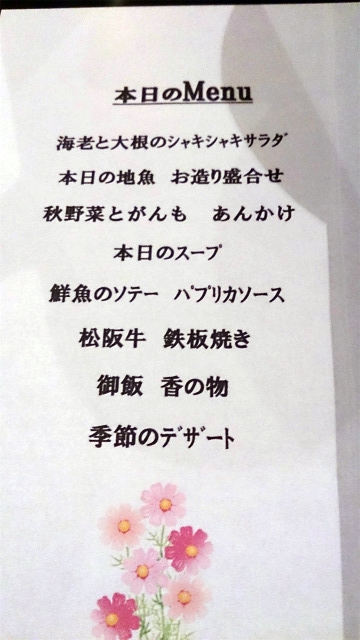 本日のMenu
海老と大根のシャキシャキサラダ
本日の地魚　お造り盛合せ
秋野菜とがんも　あんかけ
本日のスープ
鮮魚のソテー　パプリカソース
松阪牛　鉄板焼き
御飯　香の物
季節のデザート